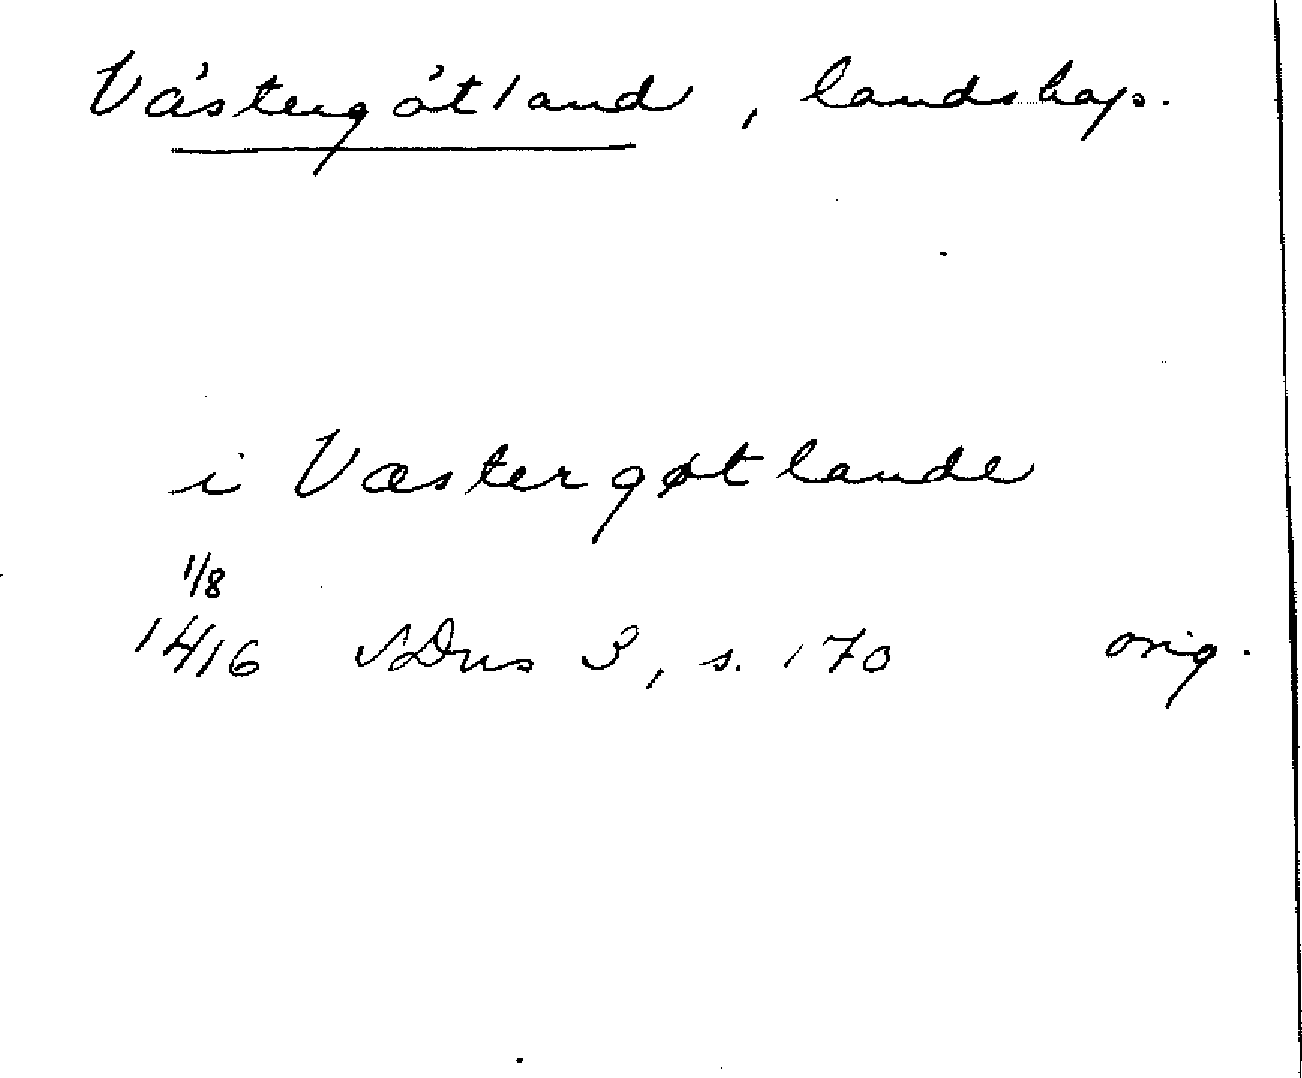 Västergötland, landskap.
i Væstergøtlande
1/8
1416 SDns 3, s. 170 orig.